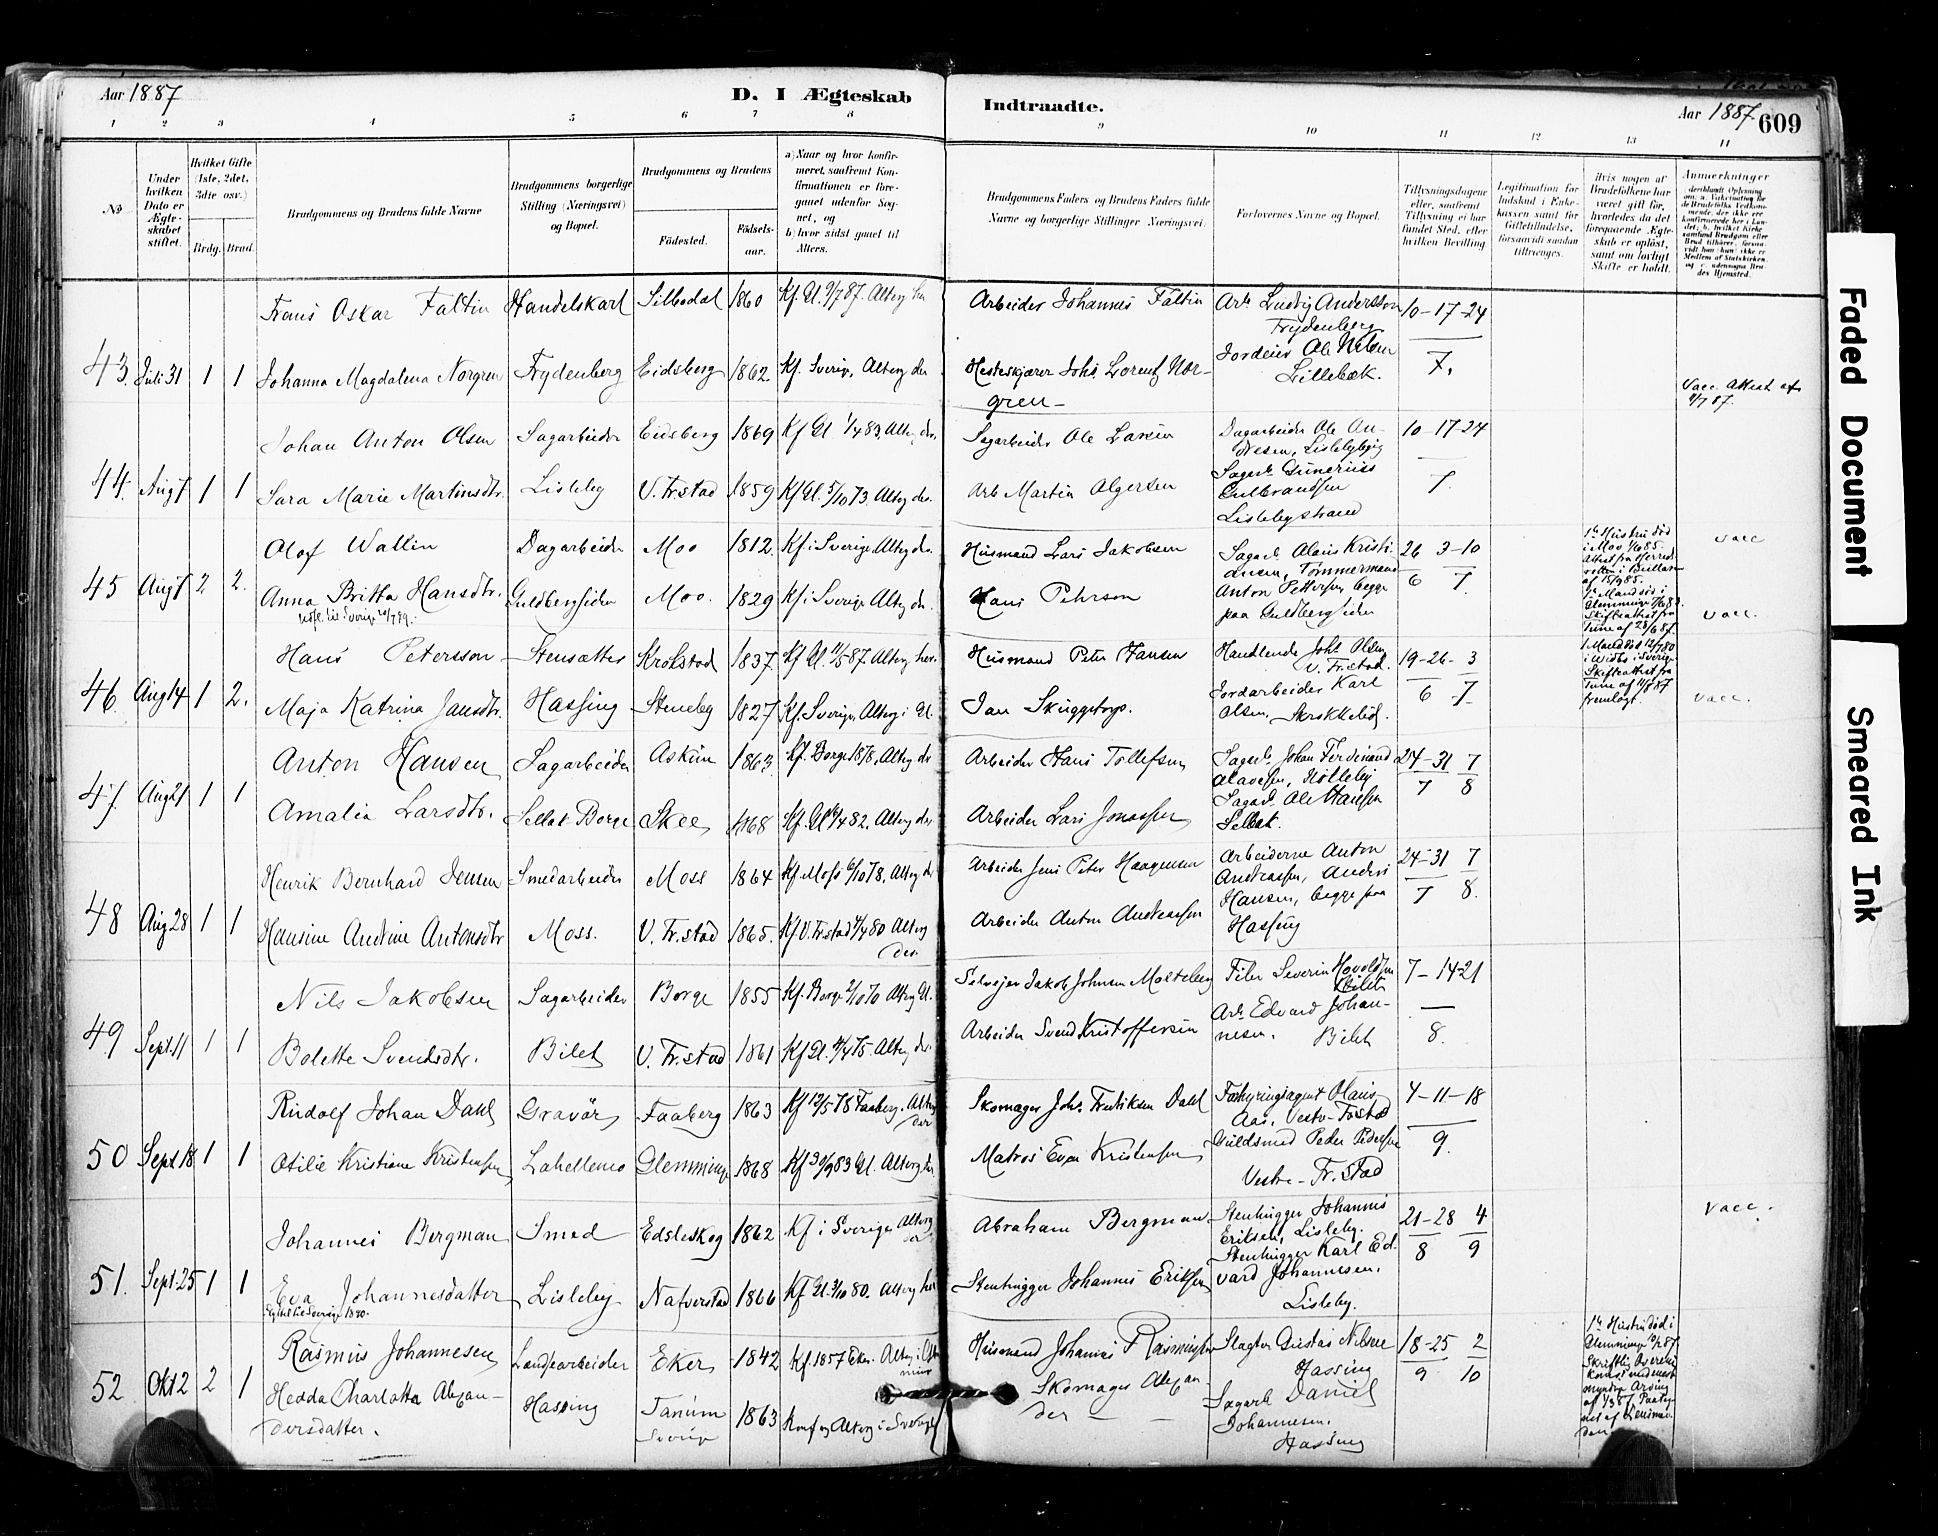 Aar 1887
D. I Ægteskab
Indtraadte.
Aar 1887 609
1 2 3 4 5 6 7 8 9 10 11 12 13 14
No
Under hvilken Dato er Ægteskabet stiftet.
Hvilket Gifte (1ste, 2det, 3die osv.)
Brdg. Brud.
Brudgommens og Brudens fulde Navne
Brudgommens borgerlige Stilling (Næringsvei) og Bopæl.
Brudgommens og Brudens
Fødested.
Fødselsaar.
a) Naar og hvor konfirmeret, saafremt Konfirmationen er foregaaet udenfor Sognet, og
b) hvor sidst gaaet til Alters.
Brudgommens Faders og Brudens Faders fulde Navne og borgerlige Stillinger (Næringsvei).
Forlovernes Navne og Bopæl.
Tillysningsdagene eller, saafremt Tillysning ei har fundet Sted, efter hvilken Bevilling
Legitimation for Indskud i Enkekassen samt for Giftetilladelse, forsaavidt saadan tiltrænges.
Hvis nogen af Brudefolkene har været gift før, hvorledes da det foregaaende Ægteskab er opløst, samt om lovligt Skifte er holdt.
Anmærkninger
43. Juli 31 1 1
Frans Oskar Faltin Handelskarl Sillbodal 1860 Kf. Gl. 9/7 87. Alterg. her
Arbeider Johannes Faltin Arb. Ludvig Andersson Frydenberg 10-17-24
Johanna Magdalena Norgren Frydenberg Eidsberg 1862 Kf. Sverige, Alterg. der
Hesteskjærer Johs. Lorentz Norgren Jordeier Ole Nilsen Lillebæk. 7.
Vacc. Attest af 9/7 87.
44. Aug 7 1 1
Johan Anton Olsen Sagarbeider Eidsberg 1869 Kf. Gl. 1/4 83, Alterg. der.
Sagarbeider Ole Larsen Dagarbeider Ole Andresen, Lislebybyig 10-17-24
Sara Marie Martinsdtr. Lisleby V. Fr.stad 1859 Kf Gl. 5/10 73. Alterg der.
Arb Martin Algersen Sagarb. Gunerius Gulbrandsen Lislebystrand 7.
45 Aug 7 2 2.
Olof Wallin Dagarbeider Moo 1812. Kf. i Sverige, Alterg der.
Husmand Lars Jakobsen Sagarb. Olaus Kristiansen, Tømmermand Anton Pettersen, begge paa Guldbergsiden 26/6 3-10/7
Anna Britta Hansdtr. Guldbergsiden Moo. 1829 Kf. i Sverige Alterg der.
Hans Pehrson
1ste Hustru død i Moo 1/10 85.
vacc
vacc.
46 Aug 14 1 2.
Hans Petersson Stensætter Krokstad 1837 Kf Gl. 11/5 87. Alterg. her.
Husmand Peter Hansen Handlende Johs Olsen V. Fr.stad. 19-26/6 3/7
Maja Katrina Jansdtr. Hassing Steneby 1827 Kf. Sverige, Alterg. i Gl.
Jan Skuggetorp. Jordarbeider Karl Olsen, Skrokkelid.
vacc.
47. Aug 21 1 1
Anton Hansen Sagarbeider Askim 1863. Kf. Borge 1878, Alterg der
Arbeider Hans Tollefsen Sagarb. Johan Ferdinand Olavesen, Holleby 24-31/7 7/8
Amalia Larsdtr. Sellat Borge Skee 1868 Kf. Gl 16/4 82. Alterg der
Arbeider Lars Jonassen Sagarb. Ole Hansen Sellat.
48 Aug 28 1 1
Henrik Bernhard Jensen Smedarbeider Moss 1864 Kf. Moss 6/10 78, Alterg der
Arbeider Jens Peter Haagensen Arbeiderne Anton Andreassen, Anders Hansen, begge paa Hassing 24-31/7 7/8.
Hansine Andrine Antonsdtr Moss. V. Fr.stad 1865. Kf. V. Fr.stad 4/4 80 Alterg der.
Arbeider Anton Andreassen
49 Sept. 11 1 1
Nils Jakobsen Sagarbeider Borge 1855 Kf. Borge 2/10 70 Alterg Gl.
Selvejer Jakob Johnsen Molteberg Filer Severin Havoldsen Bilet 7-14-21
Bolette Svendsdtr. Bilet V. Fr.stad 1861 Kf Gl. 4/4 75. Alterg der.
Arbeider Svend Kristoffersen Arb. Edvard Johannesen. Bilet 8.
50 Sept 18 1 1
Rudolf Johan Dahl Gravør Faaberg 1863 Kf 12/5 78 Faaberg. Alterg der
Skomager Johs. Fredriksen Dahl Forhyringsagent Olaus Aas, Vestre-Frstad 4-11-18
Otilie Kristiane Kristensen Lahellemo Glemminge 1868 Kf 30/9 83 Gl. Alterg her
Matros Even Kristensen Guldsmed Peder Pedersen Vestre-Fr.stad 9.
51. Sept. 25 1 1
Johannes Bergman Smed Edsleskog 1862 Kf i Sverige Alterg der
Abraham Bergman Stenhugger Johannes Eriksen, Lisleby. 21-28/8 4/9
Eva Johannesdatter Lisleby Natverstad 1866 Kf Gl. 3/10 80. Alterg her
Stenhugger Johannes Eriksen Stenhugger Karl Edvard Johannesen. Lisleby.
Vacc.
52 Okt 2 2 1
Rasmus Johannesen Landsarbeider Eker 1842 Kf. 1857 Eker.
Husmand Johannes Rasmussen Slagter Gustav Nilsen Hassing 18-25/9 2/10
Hedda Charlotta Alexandersdatter. Hassing Tanum Sverige 1863 Konf og Alterg i Sverige
Skomager Alexander — — Sagarb Daniel Johannesen. Hassing
Faded Document
Smeared Ink